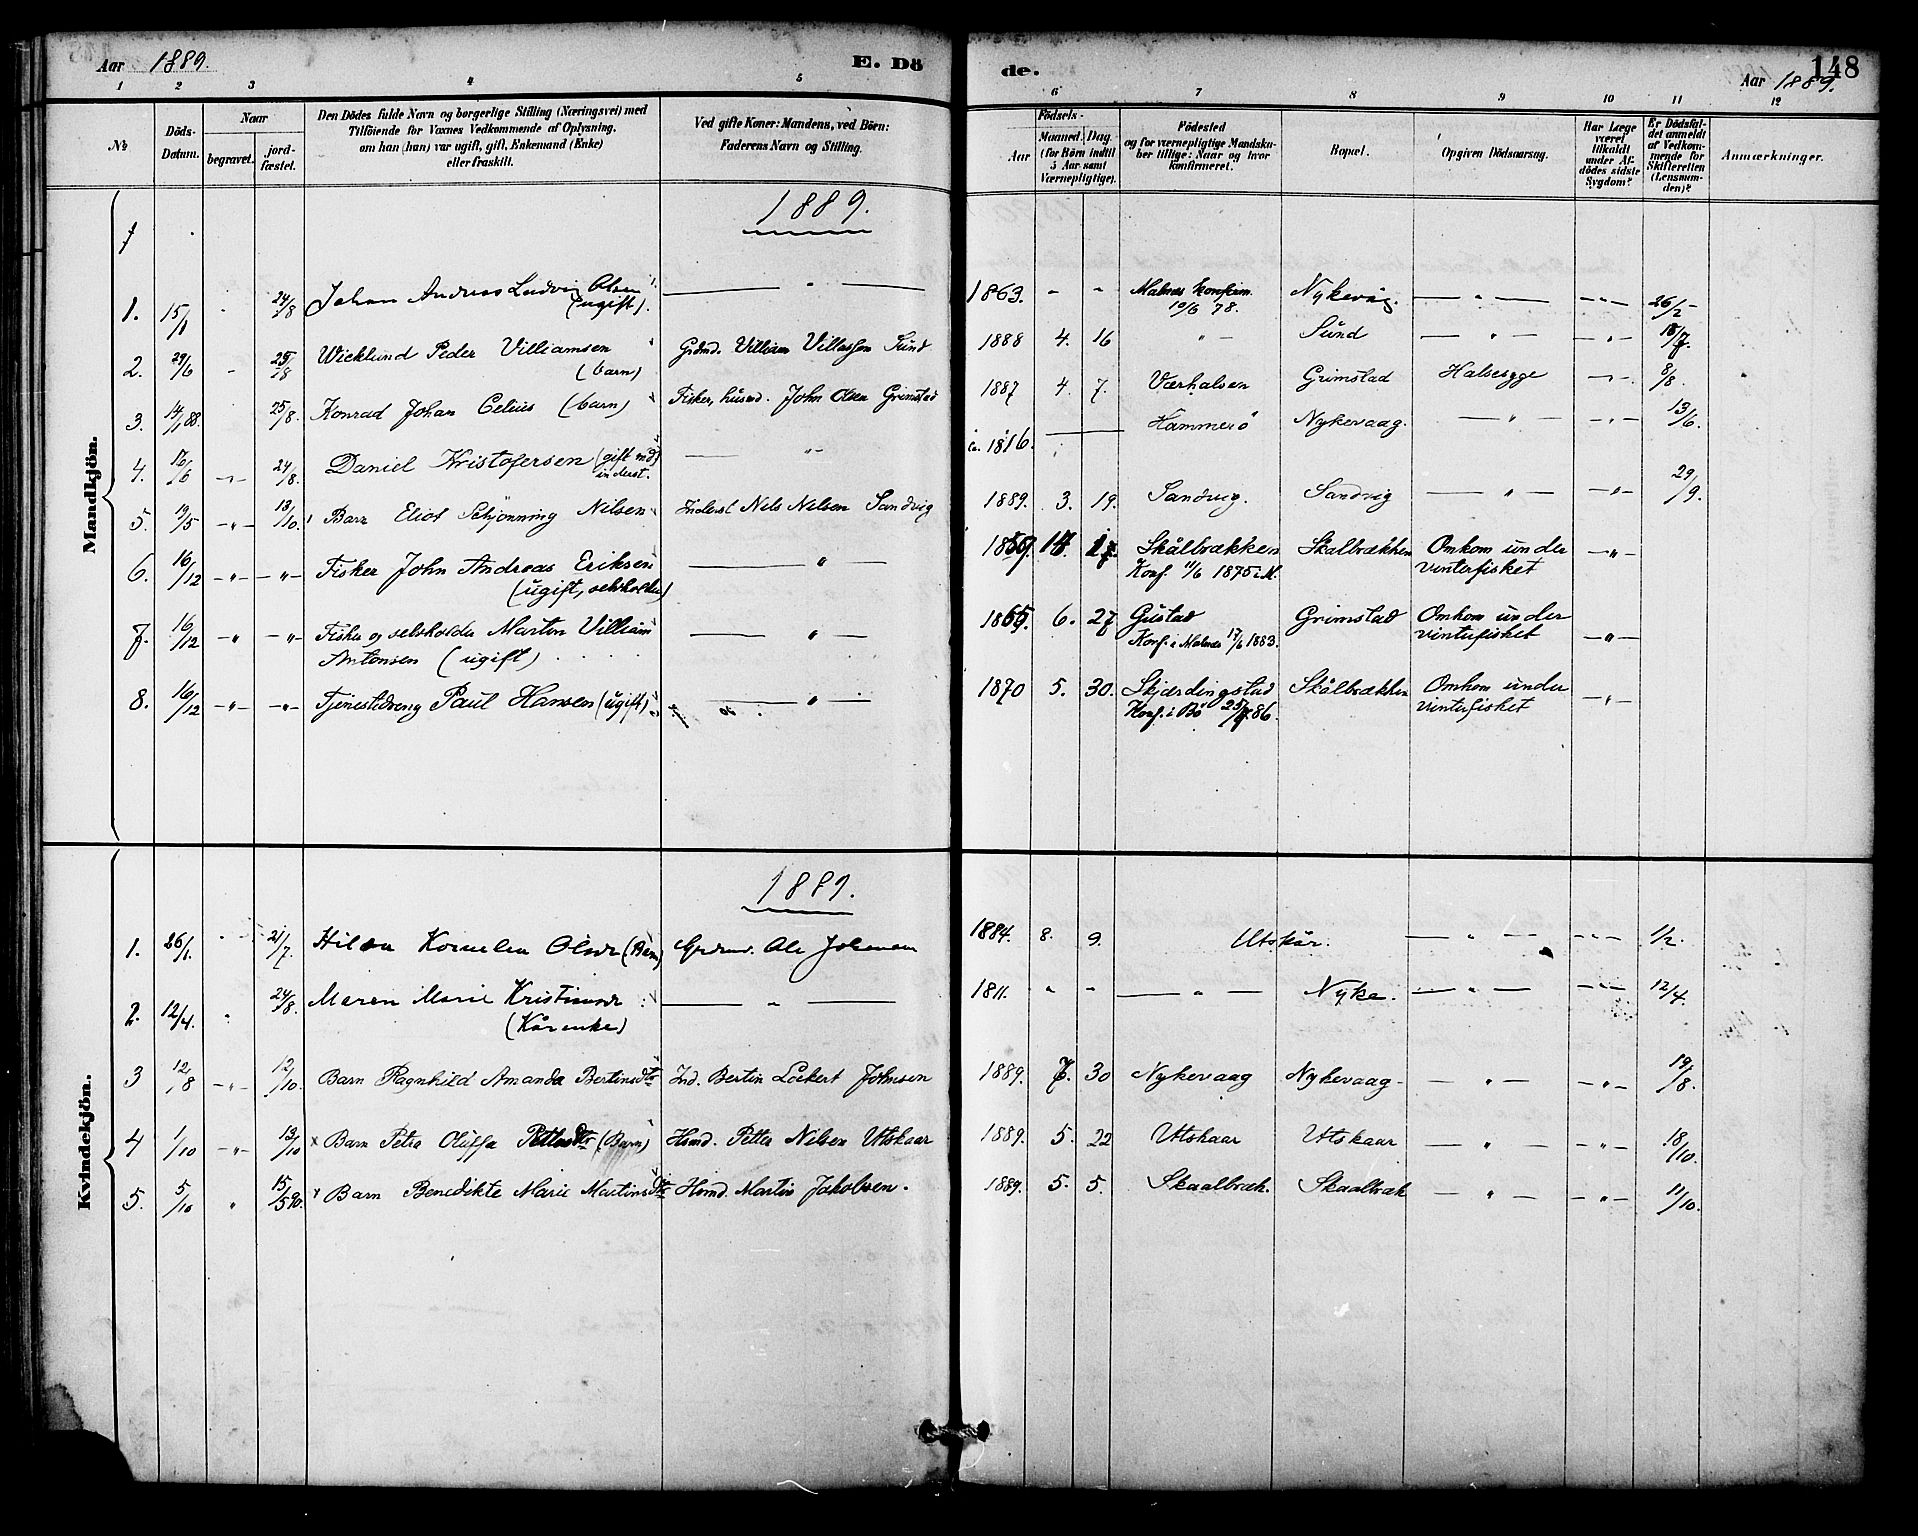 Aar 1889. E. Dö de. Aar 1889. 148
1 2 3 4 5 6 7 8 9 10 11 12
№ Döds-Datum. Naar begravet. jord-fæstet. Den Dödes fulde Navn og borgerlige Stilling (Næringsvei) med Tilföiende for Voxnes Vedkommende af Oplysning, om han (hun) var ugift, gift, Enkemand (Enke) eller fraskilt. Ved gifte Koner: Mandens, ved Börn: Faderens Navn og Stilling. Födsels- Aar Maaned. Dag. (for Börn indtil 5 Aar samt Værnepligtige). Födested og for værnepligtige Mandskaber tillige: Naar og hvor konfirmeret. Bopæl. Opgiven Dödsaarsag. Har Læge været tilkaldt under Afdödes sidste Sygdom? Er Dödsfaldet anmeldt af Vedkommende for Skifteretten (Lensmanden)? Anmærkninger.
Mandkjön.
1889.
1. 15/1 24/8 Johan Andreas Ludvig Olsen (ugift). — " — 1863. " " Malnes konfirm. 10/6 78. Nykevåg. — " — — " — 26/2
2. 29/6 25/8 Wicklund Peder Villiamsen (barn) Grdmd. Villiam Villassen Sund 1888 4. 16 " — Sund — " — — " — 18/7.
3. 14/1 88. 25/8. Konrad Johan Celius (barn) Fisker, husmd. John Olsen Grimstad 1887 4. 7. Værhalsen Grimstad Halsesyge — " — 8/8.
4. 16/6 — " — 24/8. Daniel Kristofersen (gift md) inderst. — " — ca. 1816. — Hammerö Nykevaag. — " — — " — 13/6.
5. 19/5 — " — 13/10. Barn Eliot Schjönning Nilsen Inderst Nils Nilsen Sandvig 1889 3. 19. Sandvig. Sandvig — " — — " — 29/9.
6. 16/12 — " — — " — Fisker John Andreas Eriksen (ugift, selvholden) — " — Skålbrækken Konf. 11/6 1875 i M. Skålbrækken Omkom under vinterfisket — " —
7. 16/12 — " — — " — Fisker og selvholden Marton Villiam Antonsen (ugift) — " — 1865. 6. 27 Gustad Konf. i Malnes 17/6 1883. Grimstad Omkom under vinterfisket — " —
8. 16/12 — " — — " — Tjenestedreng Paul Hansen (ugift) — " — 1870 5. 30. Skjærdingstad Konf. i Bö 25/7.86. Skålbrækken Omkom under vinterfisket — " —
Kvindekjön.
1889.
1. 26/1. 21/7. Hilda Kornelia Olsdr (Barn) Grdmd. Ole Johansen 1884. 8. 9. Utskår. — " — — " — 1/2.
2. 12/4. " 24/8. Maren Marie Kristiansdr (Kårenke) — " — 1811. " " — " — Nyke. — " — — " — 12/4.
3 12/8 — " — 12/10. Barn Ragnhild Amanda Bertinsdtr Ind. Bertin Lockert Johnsen 1889. 7. 30 Nykevaag Nykevaag — " — — " — 19/8.
4 1/10 — " — 13/10 x Barn Petra Oluffa Pettersdtr (Barn) Hsmd. Petter Nilsen Utskaar 1889. 5. 22 Utskaar Utskaar — " — — " — 18/10.
5. 5/10 " 15/5 90. x Barn Benedikte Marie Martinsdtr Hsmd. Martin Jakobsen. 1889. 5. 5. Skaalbræk. Skaalbræk — " — — " — 11/10.